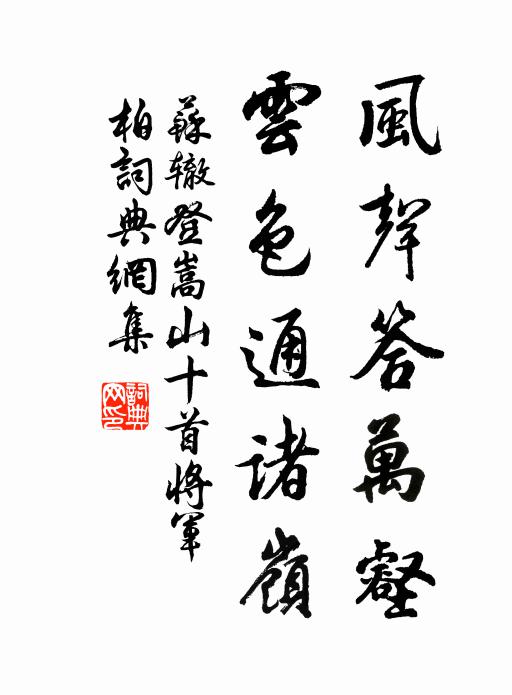 風聲答萬壑
雲色通諸嶺
蘇辙登嵩山十首將軍
柏詞典網集
詞典
网印